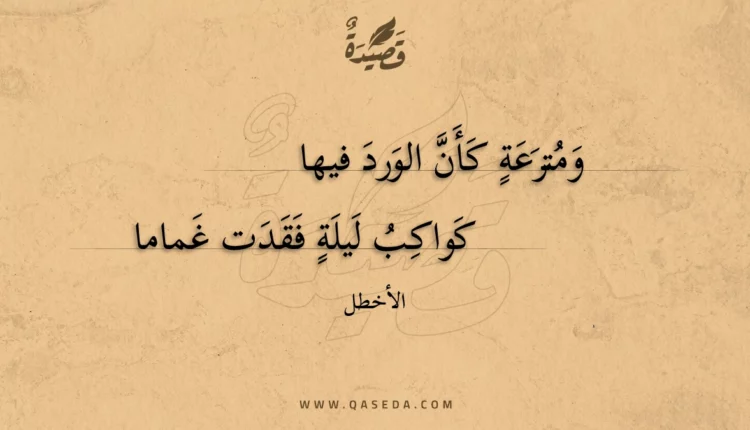 قَصِيْدَةٌ
وَمُترَعَةٍ كَأَنَّ الوَردَ فيها
كَواكِبُ لَيلَةٍ فَقَدَت غَماما
الأخطل
WWW.QASEDA.COM